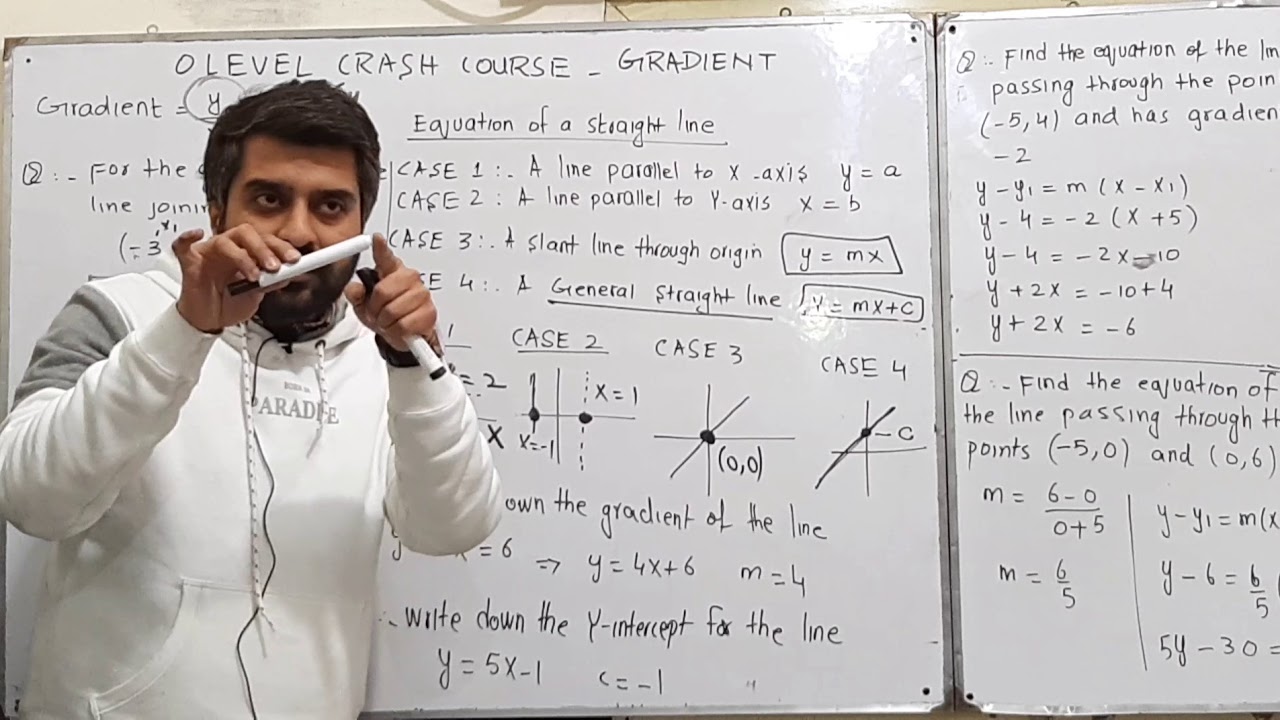 O LEVEL CRASH COURSE - GRADIENT
Gradient = y
Equation of a straight line
Q:- For the
line joining
x1
(-3
CASE 1:- A line parallel to X-axis y = a
CASE 2: A line parallel to Y-axis x = b
CASE 3:- A slant line through origin y = mx
4:- A General straight line y = mx+c
1
CASE 2
CASE 3
CASE 4
= 2
X
x=-1
x = 1
(0,0)
c
own the gradient of the line
= 6 ⇒ y = 4x+6 m = 4
:- Write down the Y-intercept for the line
y = 5x-1 c = -1
Q:- Find the equation of the
passing through the
(-5,4) and has
-2
y - y1 = m (x - x1)
y - 4 = -2 (x + 5)
y - 4 = -2x - 10
y + 2x = -10 + 4
y + 2x = -6
Q:- Find the equation of
the line passing through
points (-5,0) and (0,6)
m = 6-0
0+5
m = 6
5
y - y1 = m(x
y - 6 = 6
5
5y - 30 =
ARAD